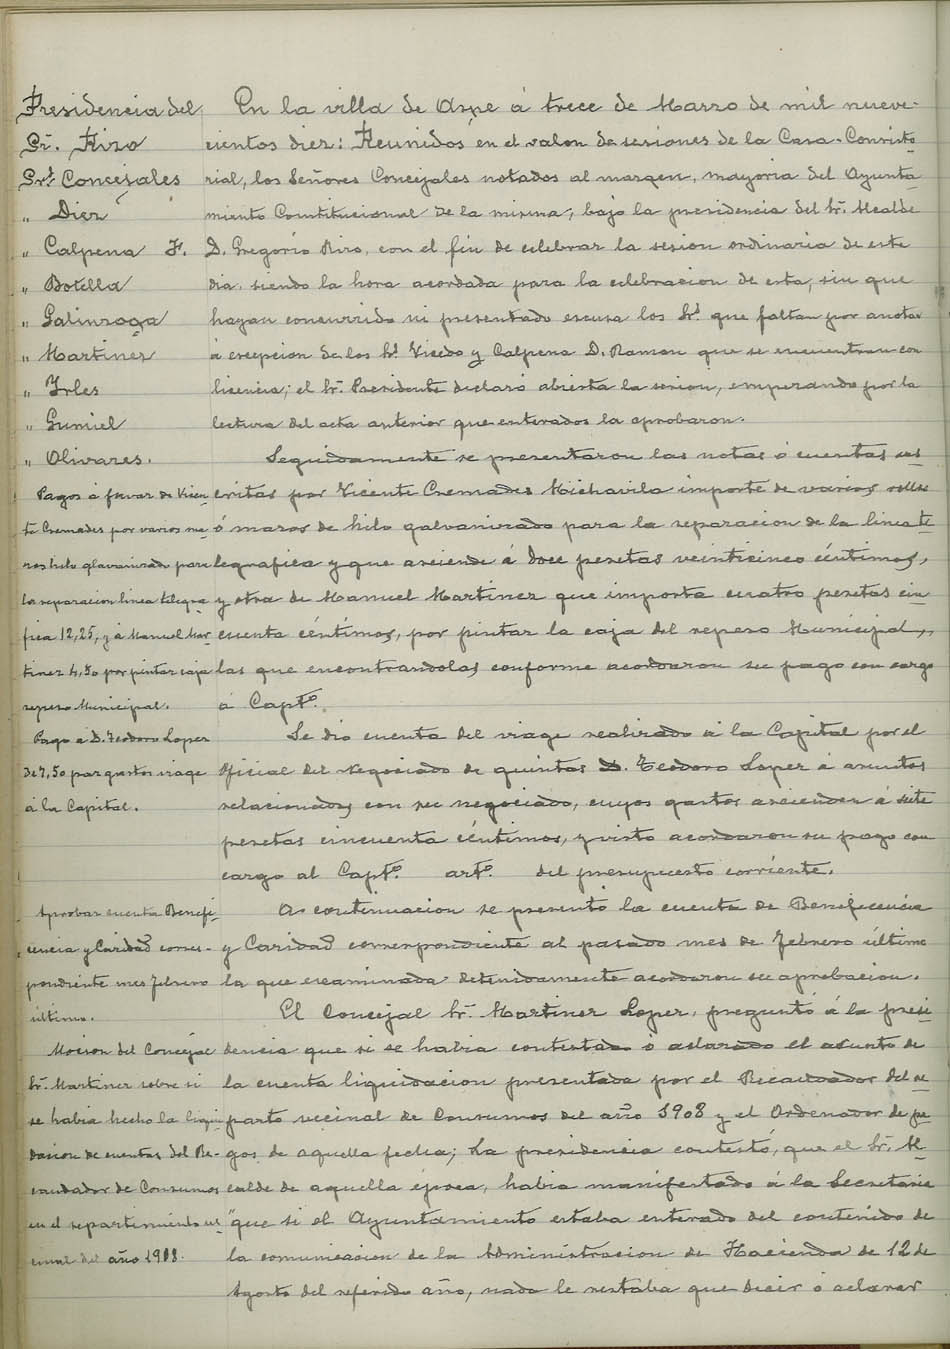 Presidencia del
Sr. Rizo
Sres. Concejales
" Diez
" Calpena F.
" Botella
" Galinsoga
" Martinez
" Irles
" Gumiel
" Olivares.
Pagos á favor de Vicen
te Cremades por varios ma
zos hilo glavanizado para
la reparacion linea telegra
fica 12,25, y á Manuel Mar
tinez 4,50 por pintar caja
repeso Municipal.
Pago a D. Teodoro Lopez
de 7,50 por gastos viage
á la Capital.
Aprobar cuenta Benefi
cencia y Caridad corres-
pondiente mes Febrero
último.
Mocion del Concejal
Sr. Martinez sobre si
se habia hecho la liqui
dacion de cuentas del Re-
caudador de Consumos
en el repartimiento ve
cinal del año 1908.
En la villa de Aspe á trece de Marzo de mil nueve-
cientos diez: Reunidos en el salon de sesiones de la Casa-Consisto
rial, los Señores Concejales notados al margen, mayoria del Ayunta
miento Constitucional de la misma, bajo la presidencia del Sr. Alcalde
D. Gregorio Rizo, con el fin de celebrar la sesion ordinaria de este
dia, siendo la hora acordada para la celebracion de esta, sin que
hayan concurrido ni presentado escusa los Sres. que faltan por anotar
á excepcion de los Sres. Visedo y Calpena D. Ramon que se encuentran con
licencia; el Sr. Presidente declaró abierta la sesion, empezando por la
lectura del acta anterior que enterados la aprobaron.
Seguidamente se presentaron las notas ó cuentas sus
critas por Vicente Cremades Michavila importe de varios rollos
ó mazos de hilo galvanizado para la reparacion de la linea te
legrafica y que asciende á doce pesetas veinticinco céntimos,
y otra de Manuel Martinez que importa cuatro pesetas cin
cuenta céntimos, por pintar la caja del repeso Municipal,
las que encontrandolas conforme acordaron su pago con cargo
á Capto.
Se dio cuenta del viage realizado á la Capital por el
Oficial del Negociado de quintas D. Teodoro Lopez á asuntos
relacionados con su negociado, cuyos gastos ascienden á siete
pesetas cincuenta céntimos, y visto acordaron su pago con
cargo al Capto. arto. del presupuesto corriente.
A continuacion se presentó la cuenta de Beneficencia
y Caridad correspondiente al pasado mes de Febrero último
la que examinada detenidamente acordaron su aprobacion.
El Concejal Sr. Martinez Lopez, preguntó á la presi
dencia que si se habia contestado ó aclarado el asunto de
la cuenta liquidacion presentada por el Recaudador del re
parto vecinal de Consumos del año 1908 y el Ordenador de pa
gos de aquella fecha; La presidencia contestó, que el Sr. Al
calde de aquella época, habia manifestado á la Secretaria
"que si el Ayuntamiento estaba enterado del contenido de
la comunicacion de la Administracion de Hacienda de 12 de
Agosto del referido año, nada le restaba que decir ó aclarar